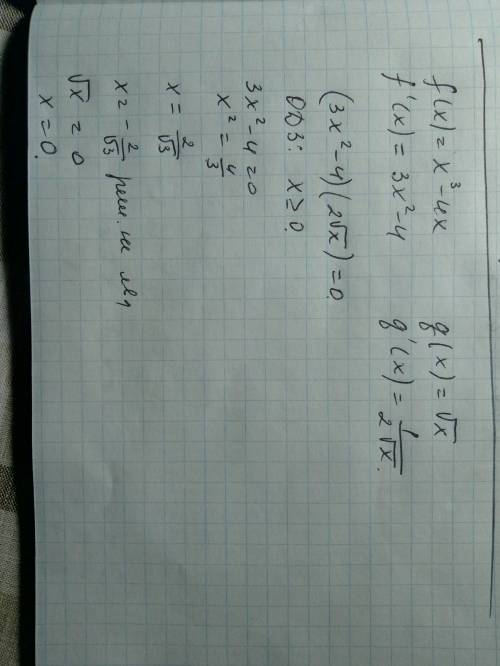 f(x) = x³ - 4x    g(x) = √x
f'(x) = 3x² - 4    g'(x) = 1/(2√x).
(3x² - 4)(2√x) = 0
ОДЗ: x ≥ 0
3x² - 4 = 0
x² = 4/3
x = 2/√3
x = - 2/√3 реш. не явл
√x = 0
x = 0.